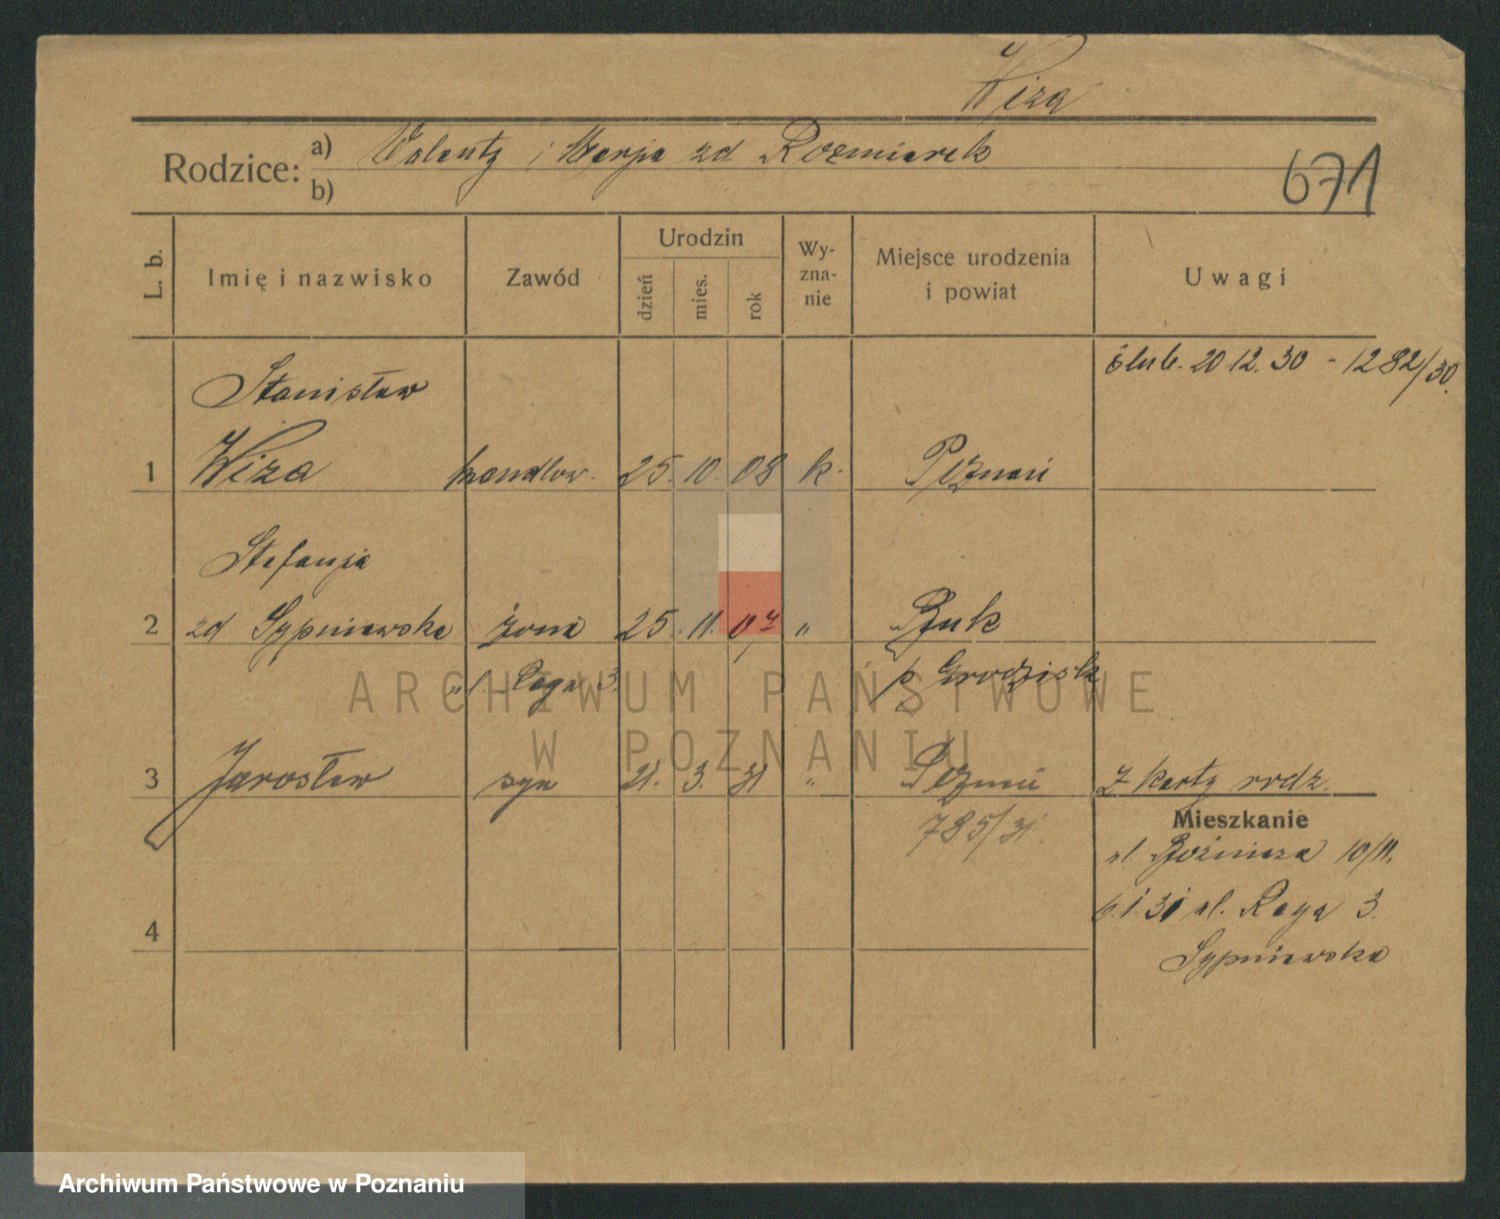 Wiza
Rodzice: a) Walenty i Marja zd Rozmiarek
b)
671
L. b.
Imię i nazwisko
Zawód
Urodzin
dzień
mies.
rok
Wy-
zna-
nie
Miejsce urodzenia
i powiat
Uwagi
ślub. 20 12. 30 - 1282/30.
Stanisław
1 Wiza handlow. 25. 10. 08 k. Poznań
Stefanja
2 zd Sypniewska żona 25. 11. 07 " Buk
ul. Roga 3. p. Grodzisk
3 Jarosław syn 21. 3. 31 " Poznań z karty rodz.
785/31.
Mieszkanie
ul. Bóżnicza 10/11.
6.1.31 ul. Roga 3.
4
Sypniewska
ARCHIWUM PAŃSTWOWE
W POZNANIU
Archiwum Państwowe w Poznaniu